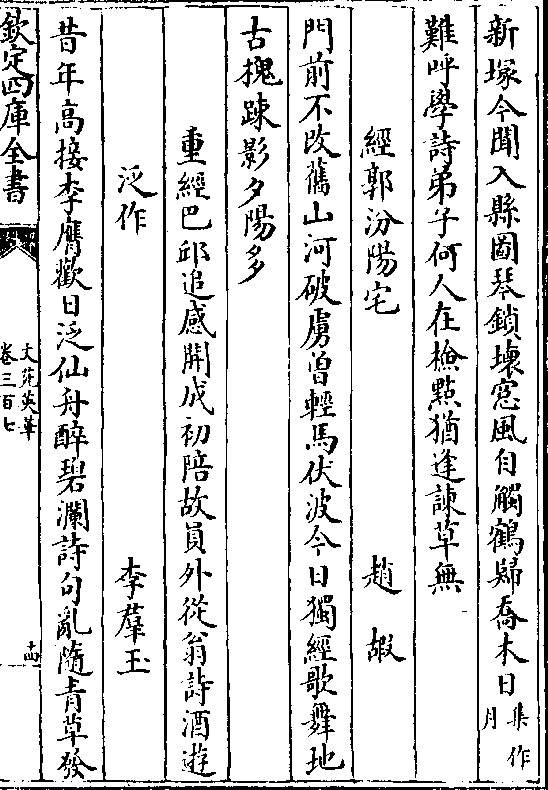 新塚今聞入縣圖琴鎖壞窓風自觸鶴歸喬木日集作月
難呼學詩弟子何人在檢點猶逢諫草無
經郭汾陽宅 趙嘏
門前不改舊山河破虜曽輕馬伏波今日獨經歌舞地
古槐踈影夕陽多
重經巴邱追感開成初陪故員外從翁詩酒遊
泛作 李羣玉
昔年高接李膺歡日泛仙舟醉碧瀾詩句亂隨青草發
欽定四庫全書
文苑英華
卷三百七
十四